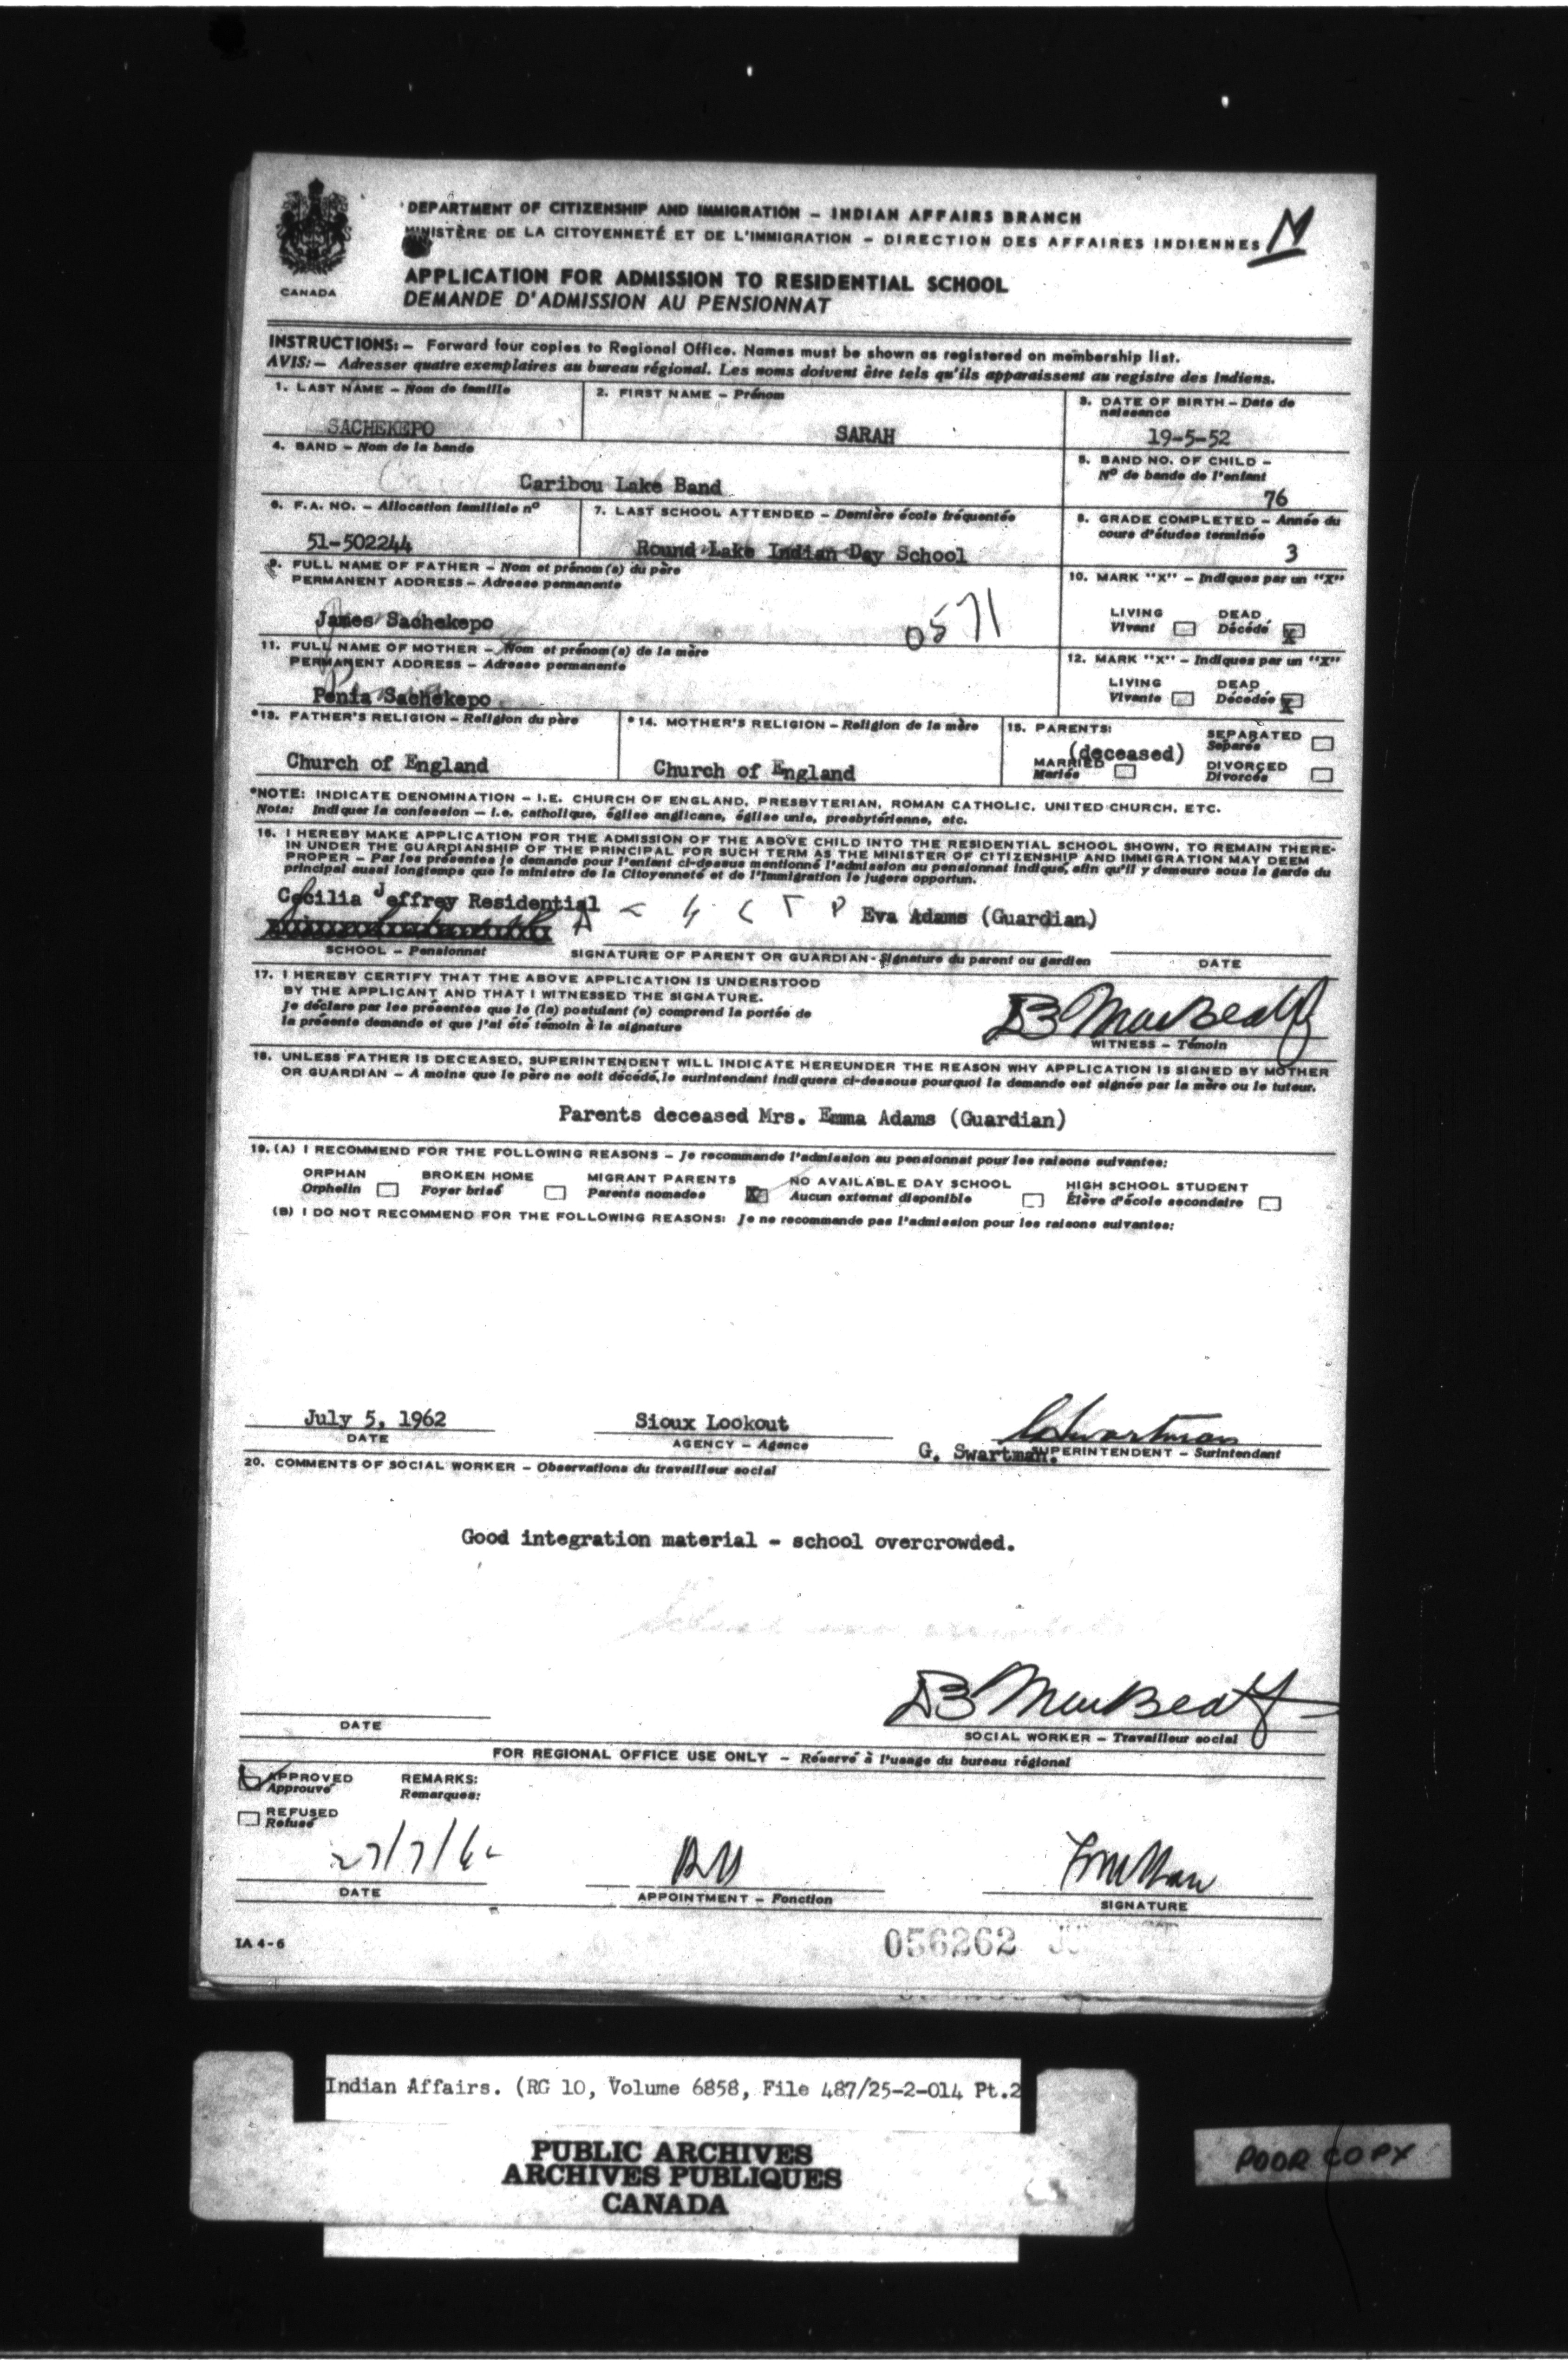 DEPARTMENT OF CITIZENSHIP AND IMMIGRATION – INDIAN AFFAIRS BRANCH
MINISTÈRE DE LA CITOYENNETÉ ET DE L'IMMIGRATION – DIRECTION DES AFFAIRES INDIENNES
N
CANADA
APPLICATION FOR ADMISSION TO RESIDENTIAL SCHOOL
DEMANDE D'ADMISSION AU PENSIONNAT
INSTRUCTIONS: – Forward four copies to Regional Office. Names must be shown as registered on membership list.
AVIS: – Adresser quatre exemplaires au bureau régional. Les noms doivent être tels qu'ils apparaissent au registre des Indiens.
1. LAST NAME – Nom de famille
SACHEKEPO
2. FIRST NAME – Prénom
SARAH
3. DATE OF BIRTH – Date de naissance
19-5-52
4. BAND – Nom de la bande
Caribou Lake Band
5. BAND NO. OF CHILD –
Nº de bande de l'enfant
76
6. F.A. NO. – Allocation familiale nº
51-502244
7. LAST SCHOOL ATTENDED – Dernière école fréquentée
Round Lake Indian Day School
8. GRADE COMPLETED – Année du
cours d'études terminée
3
9. FULL NAME OF FATHER – Nom et prénom(s) du père
PERMANENT ADDRESS – Adresse permanente
James Sachekepo
0571
10. MARK "X" – Indiques par un "X"
LIVING DEAD
Vivant Décédé X
11. FULL NAME OF MOTHER – Nom et prénom(s) de la mère
PERMANENT ADDRESS – Adresse permanente
Penia Sachekepo
12. MARK "X" – Indiques par un "X"
LIVING DEAD
Vivante Décédée X
*13. FATHER'S RELIGION – Religion du père
Church of England
*14. MOTHER'S RELIGION – Religion de la mère
Church of England
15. PARENTS:
(deceased)
MARRIED
Mariés
SEPARATED
Séparés
DIVORCED
Divorcés
*NOTE: INDICATE DENOMINATION – I.E. CHURCH OF ENGLAND, PRESBYTERIAN, ROMAN CATHOLIC, UNITED CHURCH, ETC.
Nota: Indiquer la confession – i.e. catholique, église anglicane, église unie, presbytérienne, etc.
16. I HEREBY MAKE APPLICATION FOR THE ADMISSION OF THE ABOVE CHILD INTO THE RESIDENTIAL SCHOOL SHOWN, TO REMAIN THERE-
IN UNDER THE GUARDIANSHIP OF THE PRINCIPAL FOR SUCH TERM AS THE MINISTER OF CITIZENSHIP AND IMMIGRATION MAY DEEM
PROPER – Par les présentes je demande pour l'enfant ci-dessus mentionné l'admission au pensionnat indiqué, afin qu'il y demeure sous la garde du
principal aussi longtemps que le ministre de la Citoyenneté et de l'Immigration le jugera opportun.
Cecilia Jeffrey Residential
Eva Adams (Guardian)
SCHOOL – Pensionnat
SIGNATURE OF PARENT OR GUARDIAN – Signature du parent ou gardien
DATE
17. I HEREBY CERTIFY THAT THE ABOVE APPLICATION IS UNDERSTOOD
BY THE APPLICANT AND THAT I WITNESSED THE SIGNATURE.
Je déclare par les présentes que le (la) postulant (e) comprend la portée de
la présente demande et que j'ai été témoin à la signature
WITNESS – Témoin
18. UNLESS FATHER IS DECEASED, SUPERINTENDENT WILL INDICATE HEREUNDER THE REASON WHY APPLICATION IS SIGNED BY MOTHER
OR GUARDIAN – A moins que le père ne soit décédé, le surintendant indiquera ci-dessous pourquoi la demande est signée par la mère ou le tuteur.
Parents deceased Mrs. Emma Adams (Guardian)
19. (A) I RECOMMEND FOR THE FOLLOWING REASONS – Je recommande l'admission au pensionnat pour les raisons suivantes:
ORPHAN BROKEN HOME MIGRANT PARENTS NO AVAILABLE DAY SCHOOL HIGH SCHOOL STUDENT
Orphelin Foyer brisé Parents nomades X Aucun externat disponible Élève d'école secondaire
(B) I DO NOT RECOMMEND FOR THE FOLLOWING REASONS: Je ne recommande pas l'admission pour les raisons suivantes:
July 5, 1962
DATE
Sioux Lookout
AGENCY – Agence
G. Swartman.
SUPERINTENDENT – Surintendant
20. COMMENTS OF SOCIAL WORKER – Observations du travailleur social
Good integration material – school overcrowded.
DATE
SOCIAL WORKER – Travailleur social
FOR REGIONAL OFFICE USE ONLY – Réservé à l'usage du bureau régional
APPROVED
Approuvé
REMARKS:
Remarques:
REFUSED
Refusé
27/7/62
DATE
APPOINTMENT – Fonction
SIGNATURE
IA 4-6
056262
Indian Affairs. (RG 10, Volume 6858, File 487/25-2-014 Pt.2
PUBLIC ARCHIVES
ARCHIVES PUBLIQUES
CANADA
POOR COPY